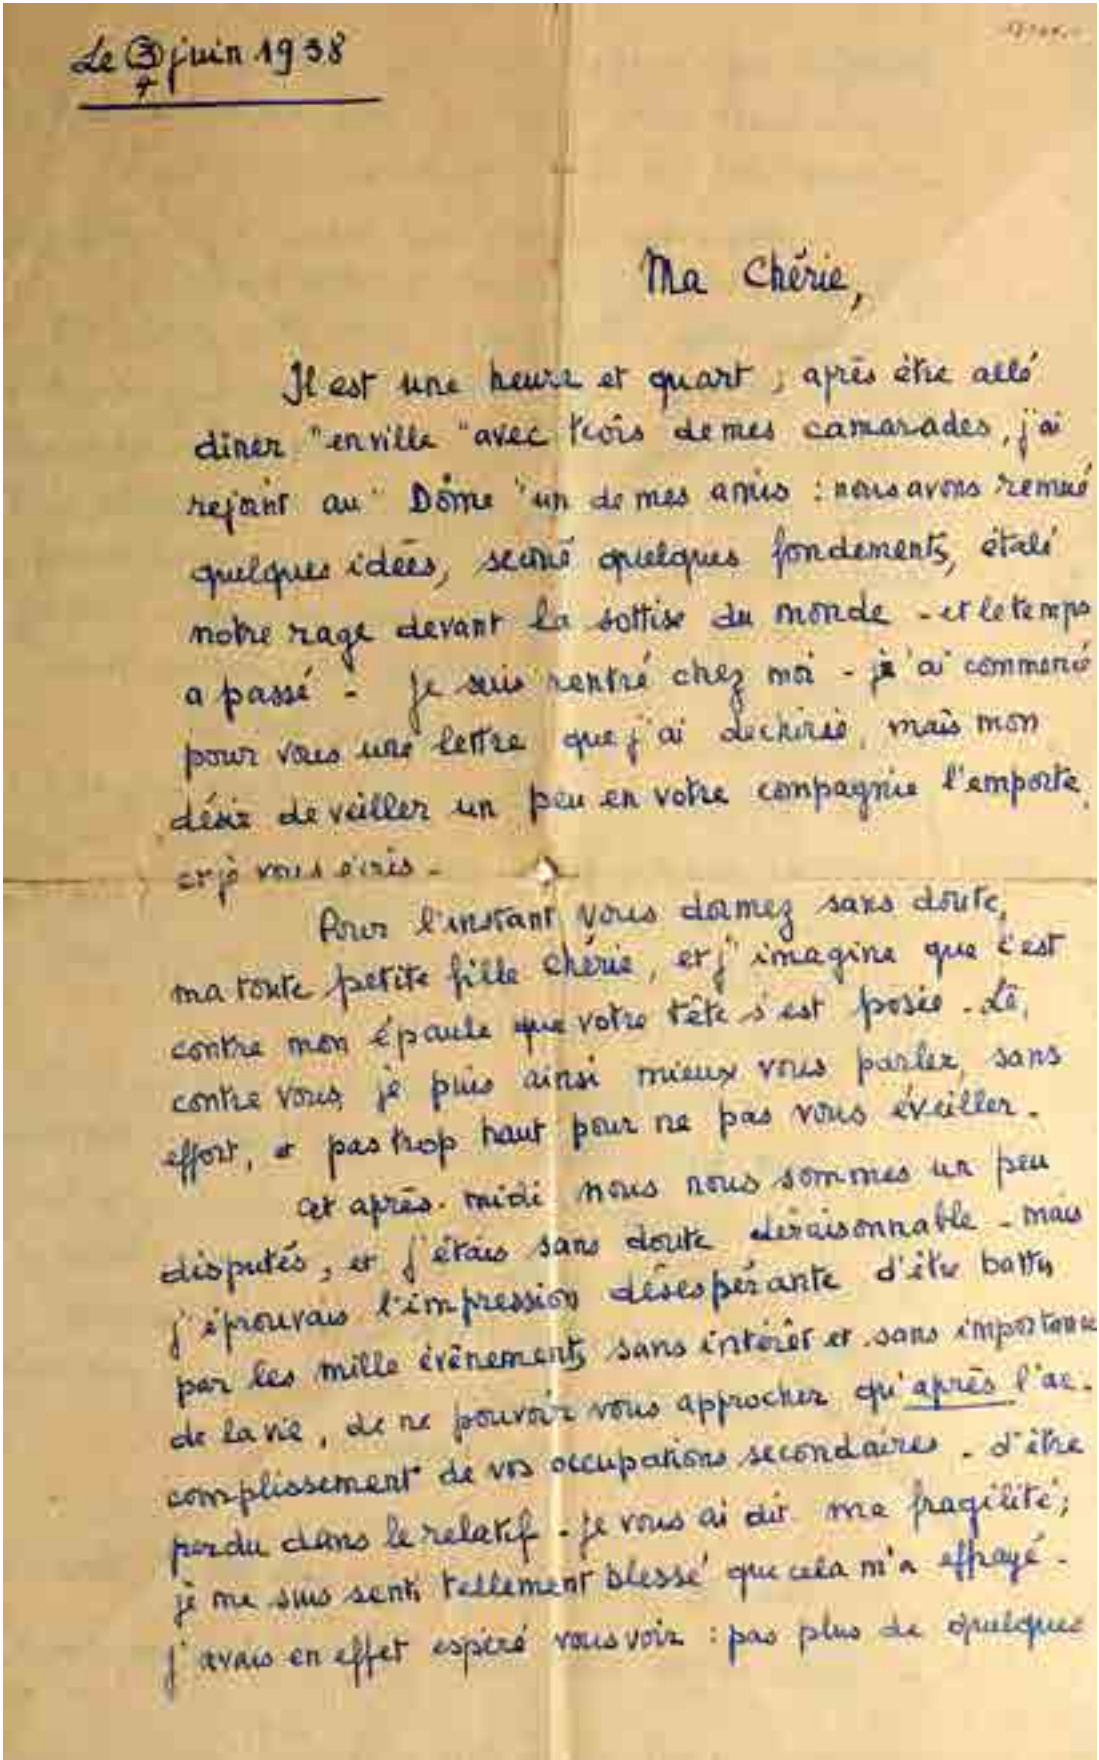 Le 3 juin 1938
4
Ma Chérie,
Il est une heure et quart ; après être allé
diner "en ville" avec trois de mes camarades, j'ai
rejoint au "Dôme" un de mes amis : nous avons remué
quelques idées, scruté quelques fondements, étalé
notre rage devant la sottise du monde - et le temps
a passé - je suis rentré chez moi - j'ai commencé
pour vous une lettre que j'ai dechirée, mais mon
désir de veiller un peu en votre compagnie l'emporte,
et je vous écris -
Pour l'instant vous dormez sans doute,
ma toute petite fille Chérie, et j'imagine que c'est
contre mon épaule que votre tête s'est posée - Là,
contre vous, je puis ainsi mieux vous parler, sans
effort, et pas trop haut pour ne pas vous éveiller -
Cet après-midi nous nous sommes un peu
disputés, et j'étais sans doute déraisonnable - mais
j'éprouvais l'impression désespérante d'être battu
par les mille évènements sans intérêt et sans importance
de la vie, de ne pouvoir vous approcher qu'après l'ac-
complissement de vos occupations secondaires - d'être
perdu dans le relatif - je vous ai dit ma fragilité ;
je me suis senti tellement blessé que cela m'a effrayé -
j'avais en effet espéré vous voir : pas plus de quelques